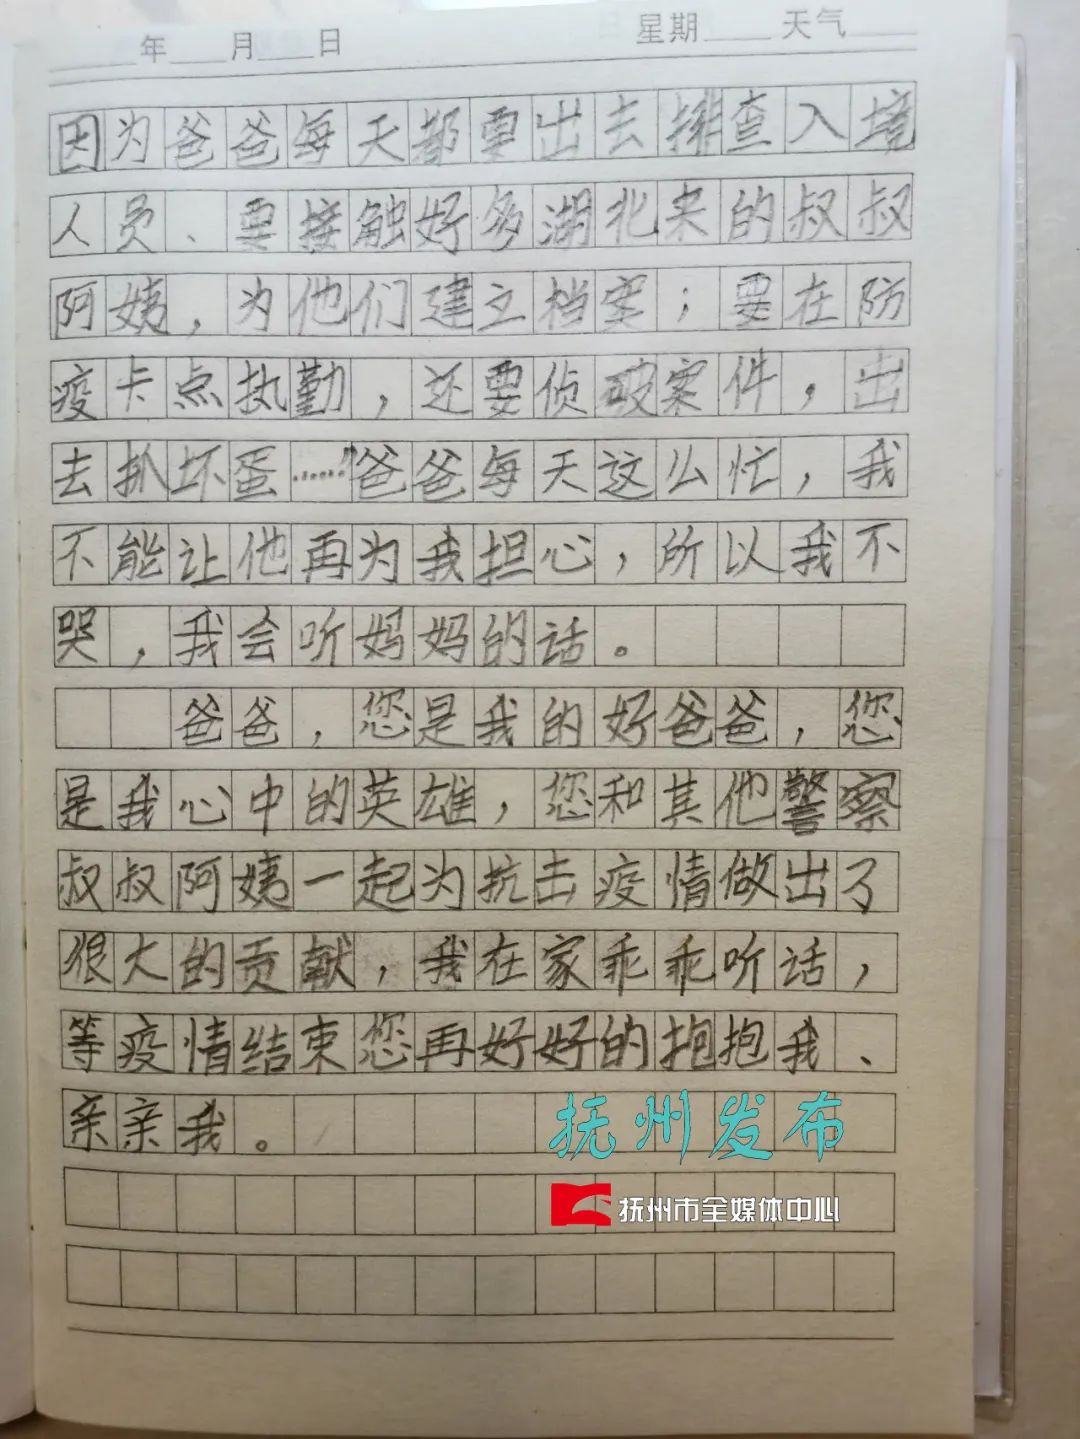 年 月 日 星期 天气
因为爸爸每天都要出去排查入境
人员、要接触好多湖北来的叔叔
阿姨，为他们建立档案；要在防
疫卡点执勤，还要侦破案件，出
去抓坏蛋……”爸爸每天这么忙，我
不能让他再为我担心，所以我不
哭，我会听妈妈的话。
爸爸，您是我的好爸爸，您
是我心中的英雄，您和其他警察
叔叔阿姨一起为抗击疫情做出了
很大的贡献，我在家乖乖听话，
等疫情结束您再好好的抱抱我、
亲亲我。
抚州发布
抚州市全媒体中心